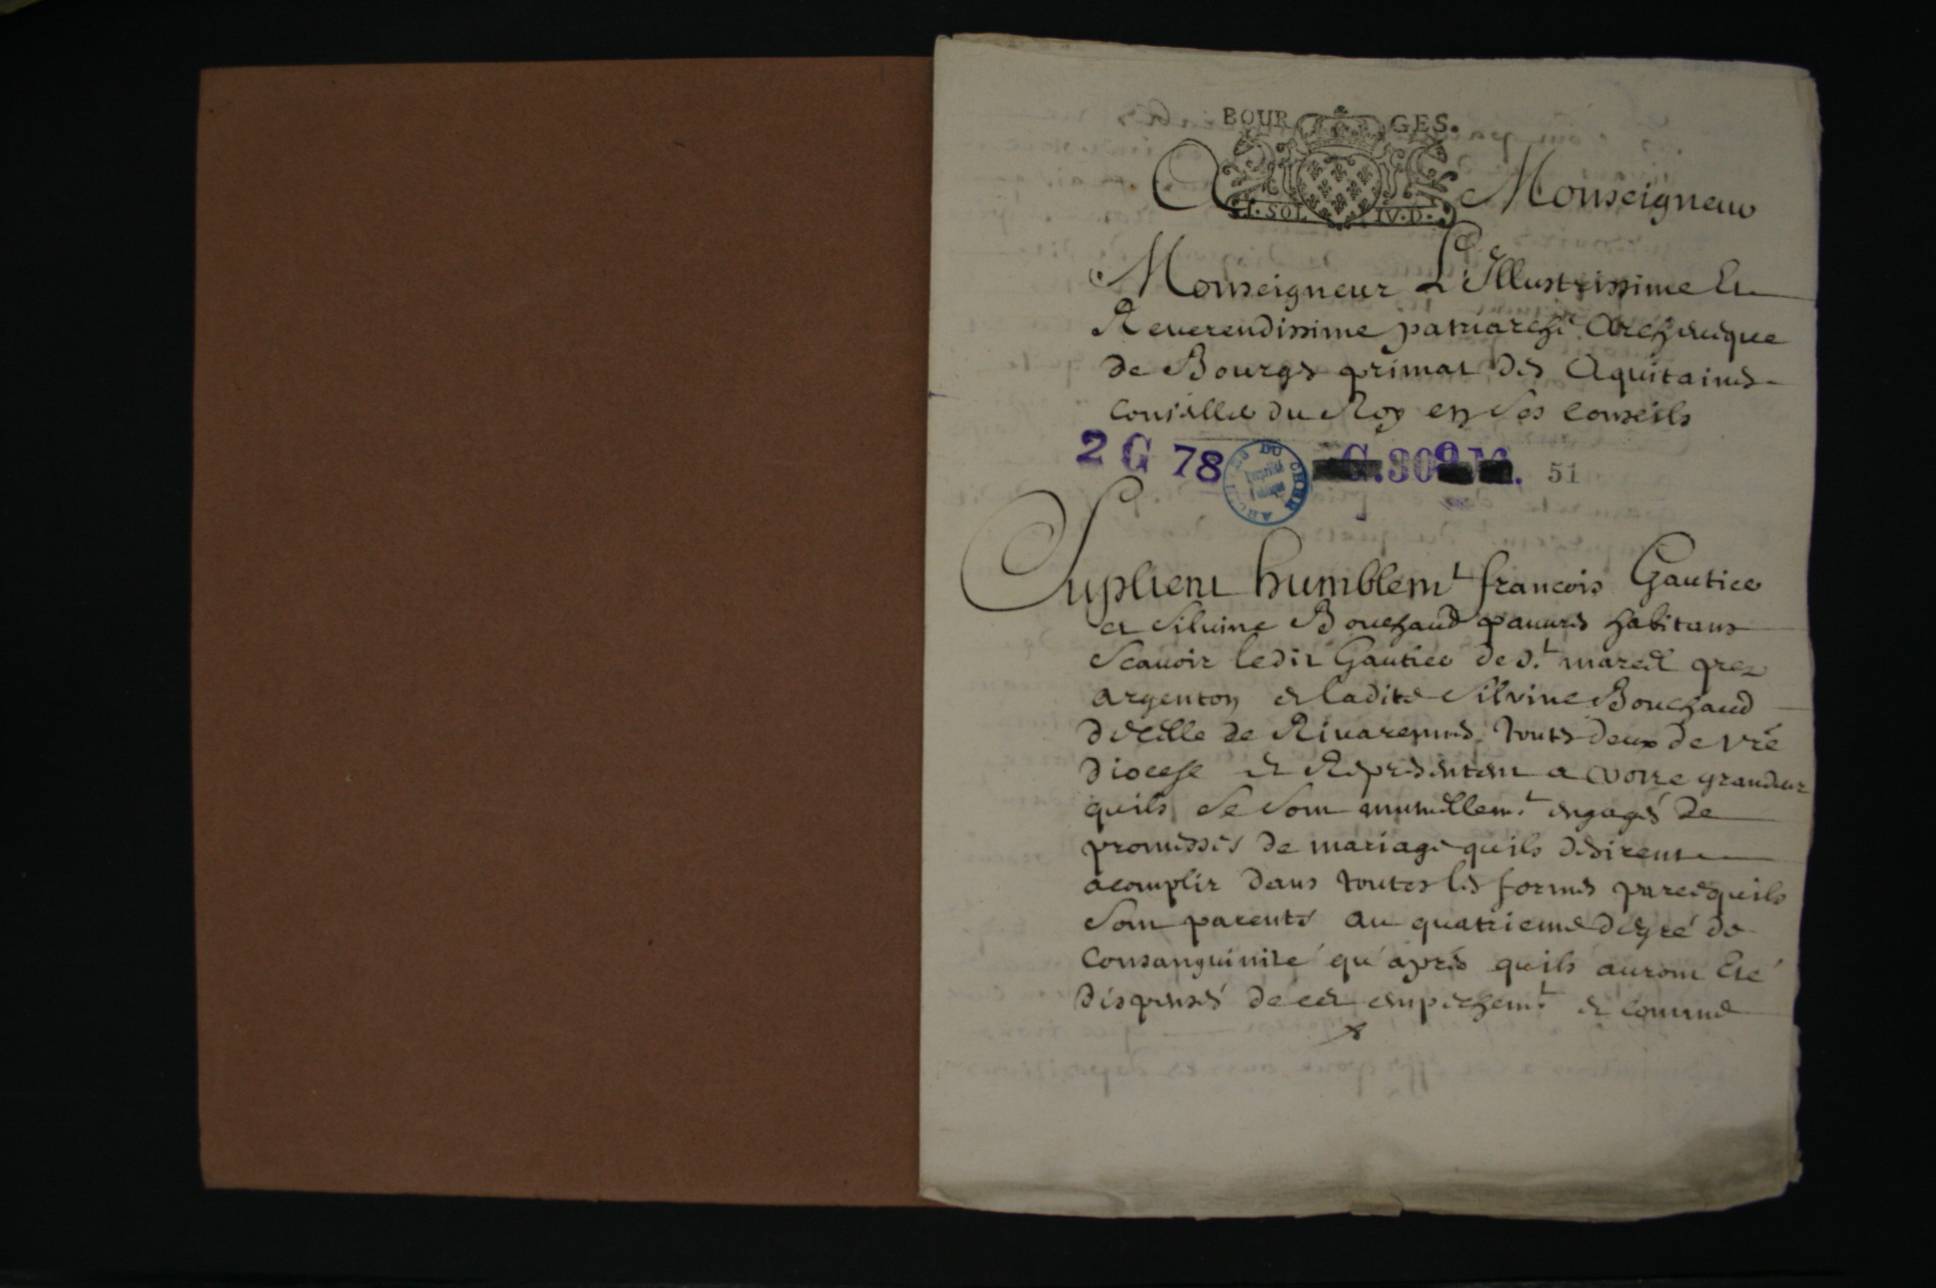 BOUR GES.
I. SOL IV. D.
A Monseigneur
Monseigneur L'Illustrissime Et
Reuerendissime patriarche Archeuêque
de Bourges primat des Aquitaines
Conseiller du Roy en Ses Conseils
2 G 78 G. 30 51
Suplient humblemt francois Gautier
et Siluine Bouchaud pauures habitans
Scauoir ledit Gautier de St marcel pres
argenton et ladite Silvine Bouchaud
de celle de Riuarennes touts deux de vre
Diocese et Representent a votre grandeur
quils Se Sont mutuellemt engagés de
promesses de mariage quils desirent
acomplir dans toutes les formes parcequils
Sont parents au quatrieme degré de
Consanguinité qu'après quils auront Eté
dispensés de cet empechemt et comme